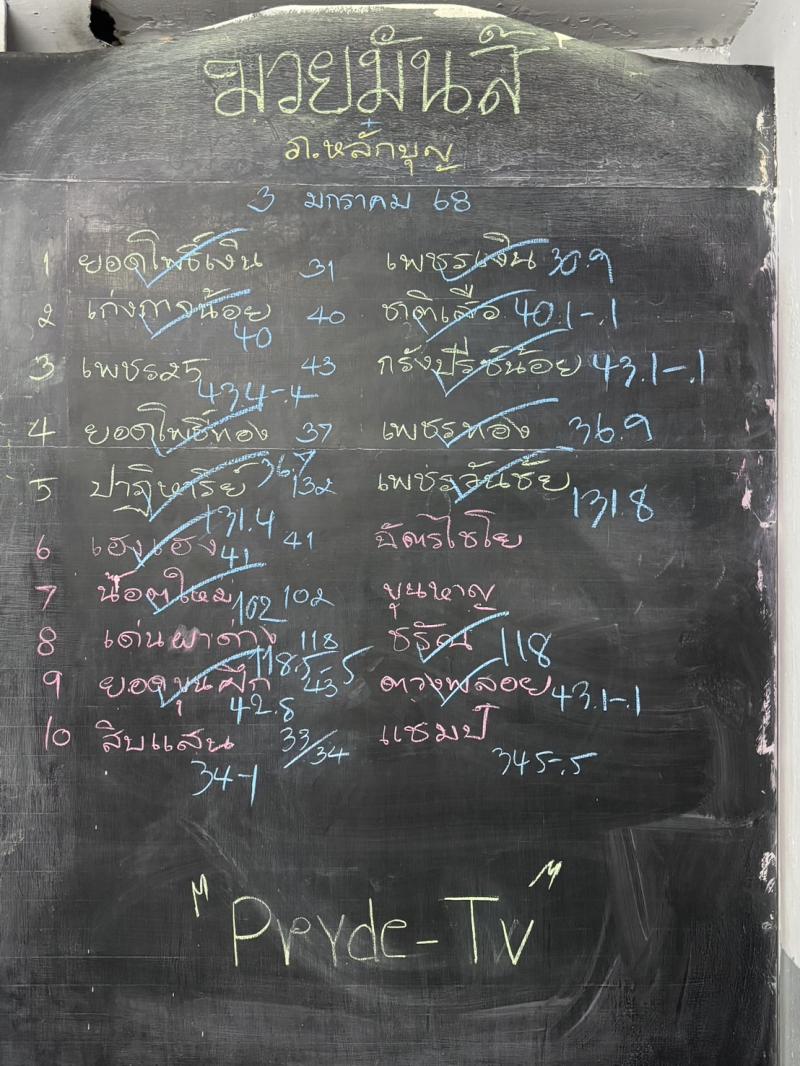 มวยมันส์
+
ภ.หลักบุญ
3 มกราคม 68
1 ยอดโพธิ์เงิน 31 เพชรเงิน 30.9
2 เก่งการน้อย 40 40 ชาติเสือ 40.1-.1
3 เพชร25 43.4-.4 43 กรังปรีซ์น้อย 43.1-.1
4 ยอดโพธิ์ทอง 36.7 37 เพชรทอง 36.9
5 ปาฏิหาริย์ 131.4 132 เพชรวันชัย 131.8
6 เฮงเฮง 41 41 ฉัตรไชโย
7 น้อตใหม่ 102 102 ขุนหาญ
8 เด่นผาด่าง 118.5-.5 118 ชรัณ 118
9 ยอดขุนศึก 42.8 43 ดวงพลอย 43.1-.1
10 สิบแสน 34-1 33/34 แชมป์ 34.5-.5
"Pryde-Tv"